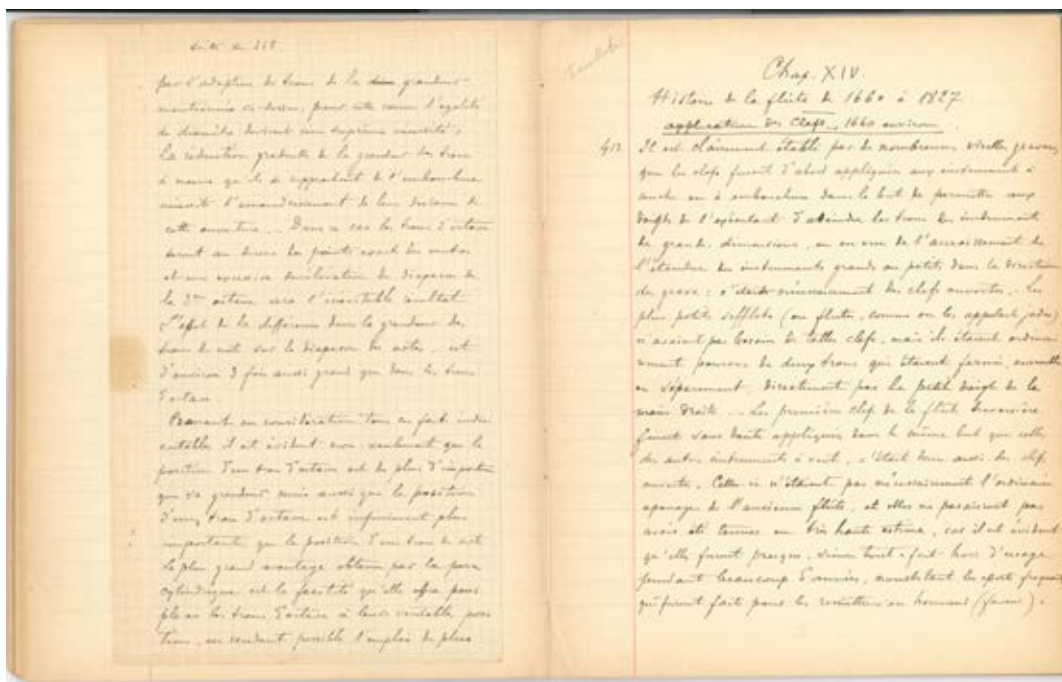 suite de 358.
par l'adoption de trous de la grandeur
mentionnée ci-dessus, pour cette raison l'égalité
de diamètre devient une suprême nécessité.
La réduction graduelle de la grandeur des trous
à mesure qu'ils se rapprochent de l'embouchure
nécessite l'amoindrissement de leur distance de
cette ouverture. Dans ce cas les trous d'octave
seront au dessus des points exacts des nodes
et une excessive élévation du diapason de
la 3me octave sera l'inévitable résultat.
L'effet de la différence dans la grandeur des
trous de note sur le diapason des notes, est
d'environ 3 fois aussi grand que dans les trous
d'octave.
Prenant en considération tous ces faits indis
cutables il est évident non seulement que la
position d'un trou d'octave est de plus d'importance
que sa grandeur mais aussi que la position
d'un trou d'octave est infiniment plus
important que la position d'un trou de note
Le plus grand avantage obtenu par la perce
cylindrique est la facilité qu'elle offre pour
placer les trous d'octave à leur véritable posi
tion, en rendant possible l'emploi de plus
Chap. XIV.
Histoire de la flûte de 1660 à 1827
application des Clefs, 1660 environ.
412. Il est clairement établi par de nombreuses vieilles gravures
que les clefs furent d'abord appliquées aux instruments à
anche ou à embouchure dans le but de permettre aux
doigts de l'exécutant d'atteindre les trous des instruments
de grandes dimensions, ou en vue de l'accroissement de
l'étendue des instruments grands ou petits dans la direction
du grave : c'était nécessairement des clefs ouvertes. Les
plus petits sifflets (ou flûtes, comme on les appelait jadis)
n'avaient pas besoin de telles clefs, mais ils étaient ordinai
rement pourvus de deux trous qui étaient fermés, ensemble
ou séparément, directement par le petit doigt de la
main droite. Les premières clefs de la flûte traversière
furent sans doute appliquées dans le même but que celles
des autres instruments à vent, c'était donc aussi des clefs
ouvertes. Celles-ci n'étaient pas nécessairement l'ordinaire
apanage de l'ancienne flûte, et elles ne paraissent pas
avoir été tenues en très haute estime, car il est évident
qu'elles furent presque, sinon tout-à-fait hors d'usage
pendant beaucoup d'années, nonobstant les efforts fréquents
qui furent faits pour les remettre en honneur (faveur).